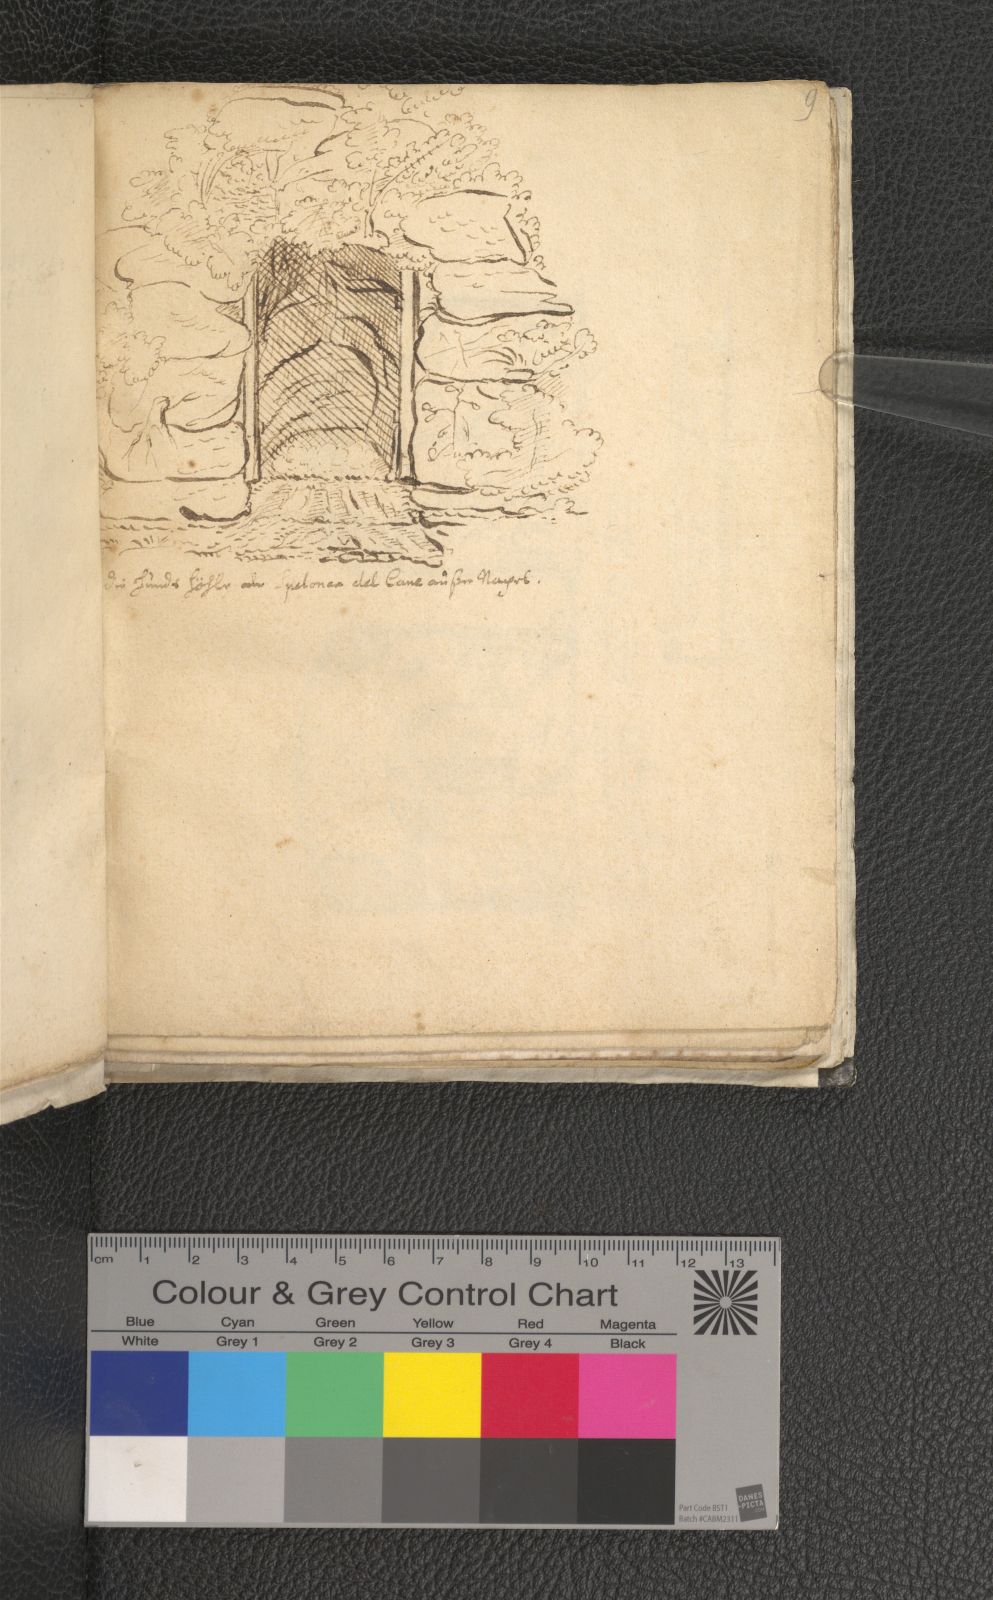 9
die Hunds Höhle oder Spelonca del Cane außer Neapel.
cm 1 2 3 4 5 6 7 8 9 10 11 12 13
Colour & Grey Control Chart
Blue Cyan Green Yellow Red Magenta
White Grey 1 Grey 2 Grey 3 Grey 4 Black
Part Code BST1
Batch #CABM2311
DANES
-PICTA